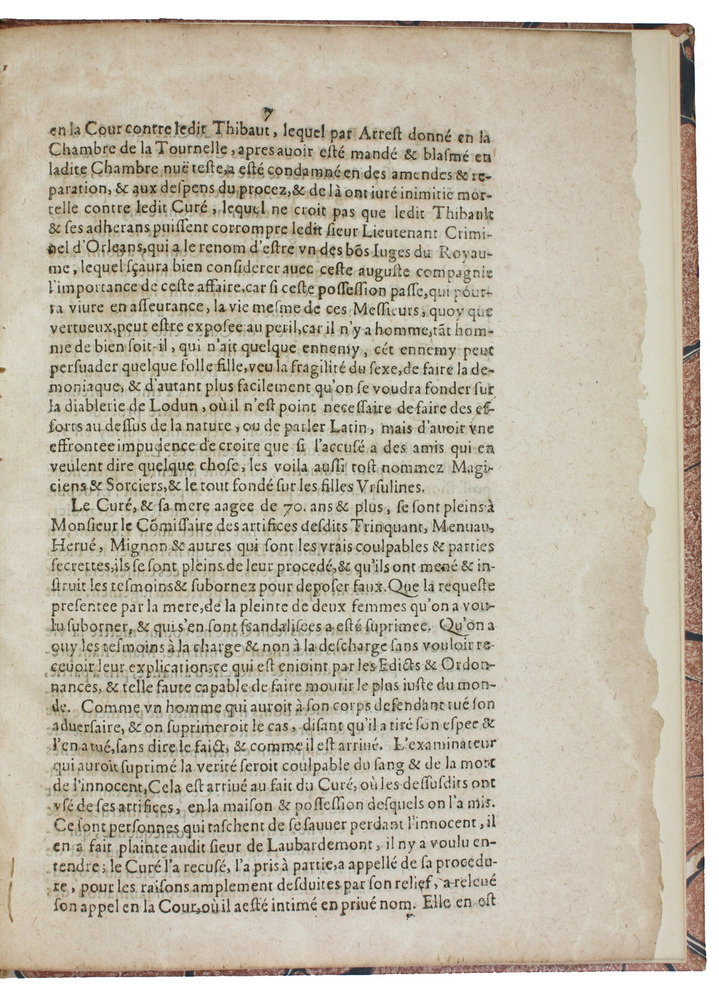 7
en la Cour contre ledit Thibaut, lequel par Arrest donné en la
Chambre de la Tournelle, apres auoir esté mandé & blasmé en
ladite Chambre nuë teste, a esté condamné en des amendes & re-
paration, & aux despens du procez, & de là ont iuré inimitié mor-
telle contre ledit Curé, lequel ne croit pas que ledit Thibault
& ses adherans puissent corrompre ledit sieur Lieutenant Crimi-
nel d'Orleans, qui a le renom d'estre vn des bõs Iuges du Royau-
me, lequel sçaura bien considerer auec ceste auguste compagnie
l'importance de ceste affaire, car si ceste possession passe, qui pour-
ra viure en asseurance, la vie mesme de ces Messieurs, quoy que
vertueux, peut estre exposee au peril, car il n'y a homme, tãt hom-
me de bien soit-il, qui n'ait quelque ennemy, cét ennemy peut
persuader quelque folle fille, veu la fragilité du sexe, de faire la de-
moniaque, & d'autant plus facilement qu'on se voudra fonder sur
la diablerie de Lodun, où il n'est point necessaire de faire des ef-
forts au dessus de la nature, ou de parler Latin, mais d'auoir vne
effrontee impudence de croire que si l'accusé a des amis qui en
veulent dire quelque chose, les voila aussi tost nommez Magi-
ciens & Sorciers, & le tout fondé sur les filles Vrsulines.
Le Curé, & sa mere aagee de 70. ans & plus, se sont pleins à
Monsieur le Cõmissaire des artifices desdits Trinquant, Menuau,
Herué, Mignon & autres qui sont les vrais coulpables & parties
secrettes, ils se sont pleins de leur procedé, & qu'ils ont mené & in-
struit les tesmoins & subornez pour deposer faux. Que la requeste
presentee par la mere, de la pleinte de deux femmes qu'on a vou-
lu suborner, & qui s'en sont scandalisees a esté suprimee. Qu'on a
ouy les tesmoins à la charge & non à la descharge sans vouloir re-
ceuoir leur explication, ce qui est enioint par les Edicts & Ordon-
nances, & telle faute capable de faire mourir le plus iuste du mon-
de. Comme vn homme qui auroit à son corps defendant tué son
aduersaire, & on suprimeroit le cas, disant qu'il a tiré son espee &
l'en a tué, sans dire le faict, & comme il est arriué. L'examinateur
qui auroit suprimé la verité seroit coulpable du sang & de la mort
de l'innocent, Cela est arriué au fait du Curé, où les dessusdits ont
vsé de ses artifices, en la maison & possession desquels on l'a mis.
Ce sont personnes qui taschent de se sauuer perdant l'innocent, il
en a fait plainte audit sieur de Laubardemont, il ny a voulu en-
tendre; le Curé l'a recusé, l'a pris à partie, a appellé de sa procedu-
re, pour les raisons amplement desduites par son relief, a releué
son appel en la Cour, où il a esté intimé en priué nom. Elle en est